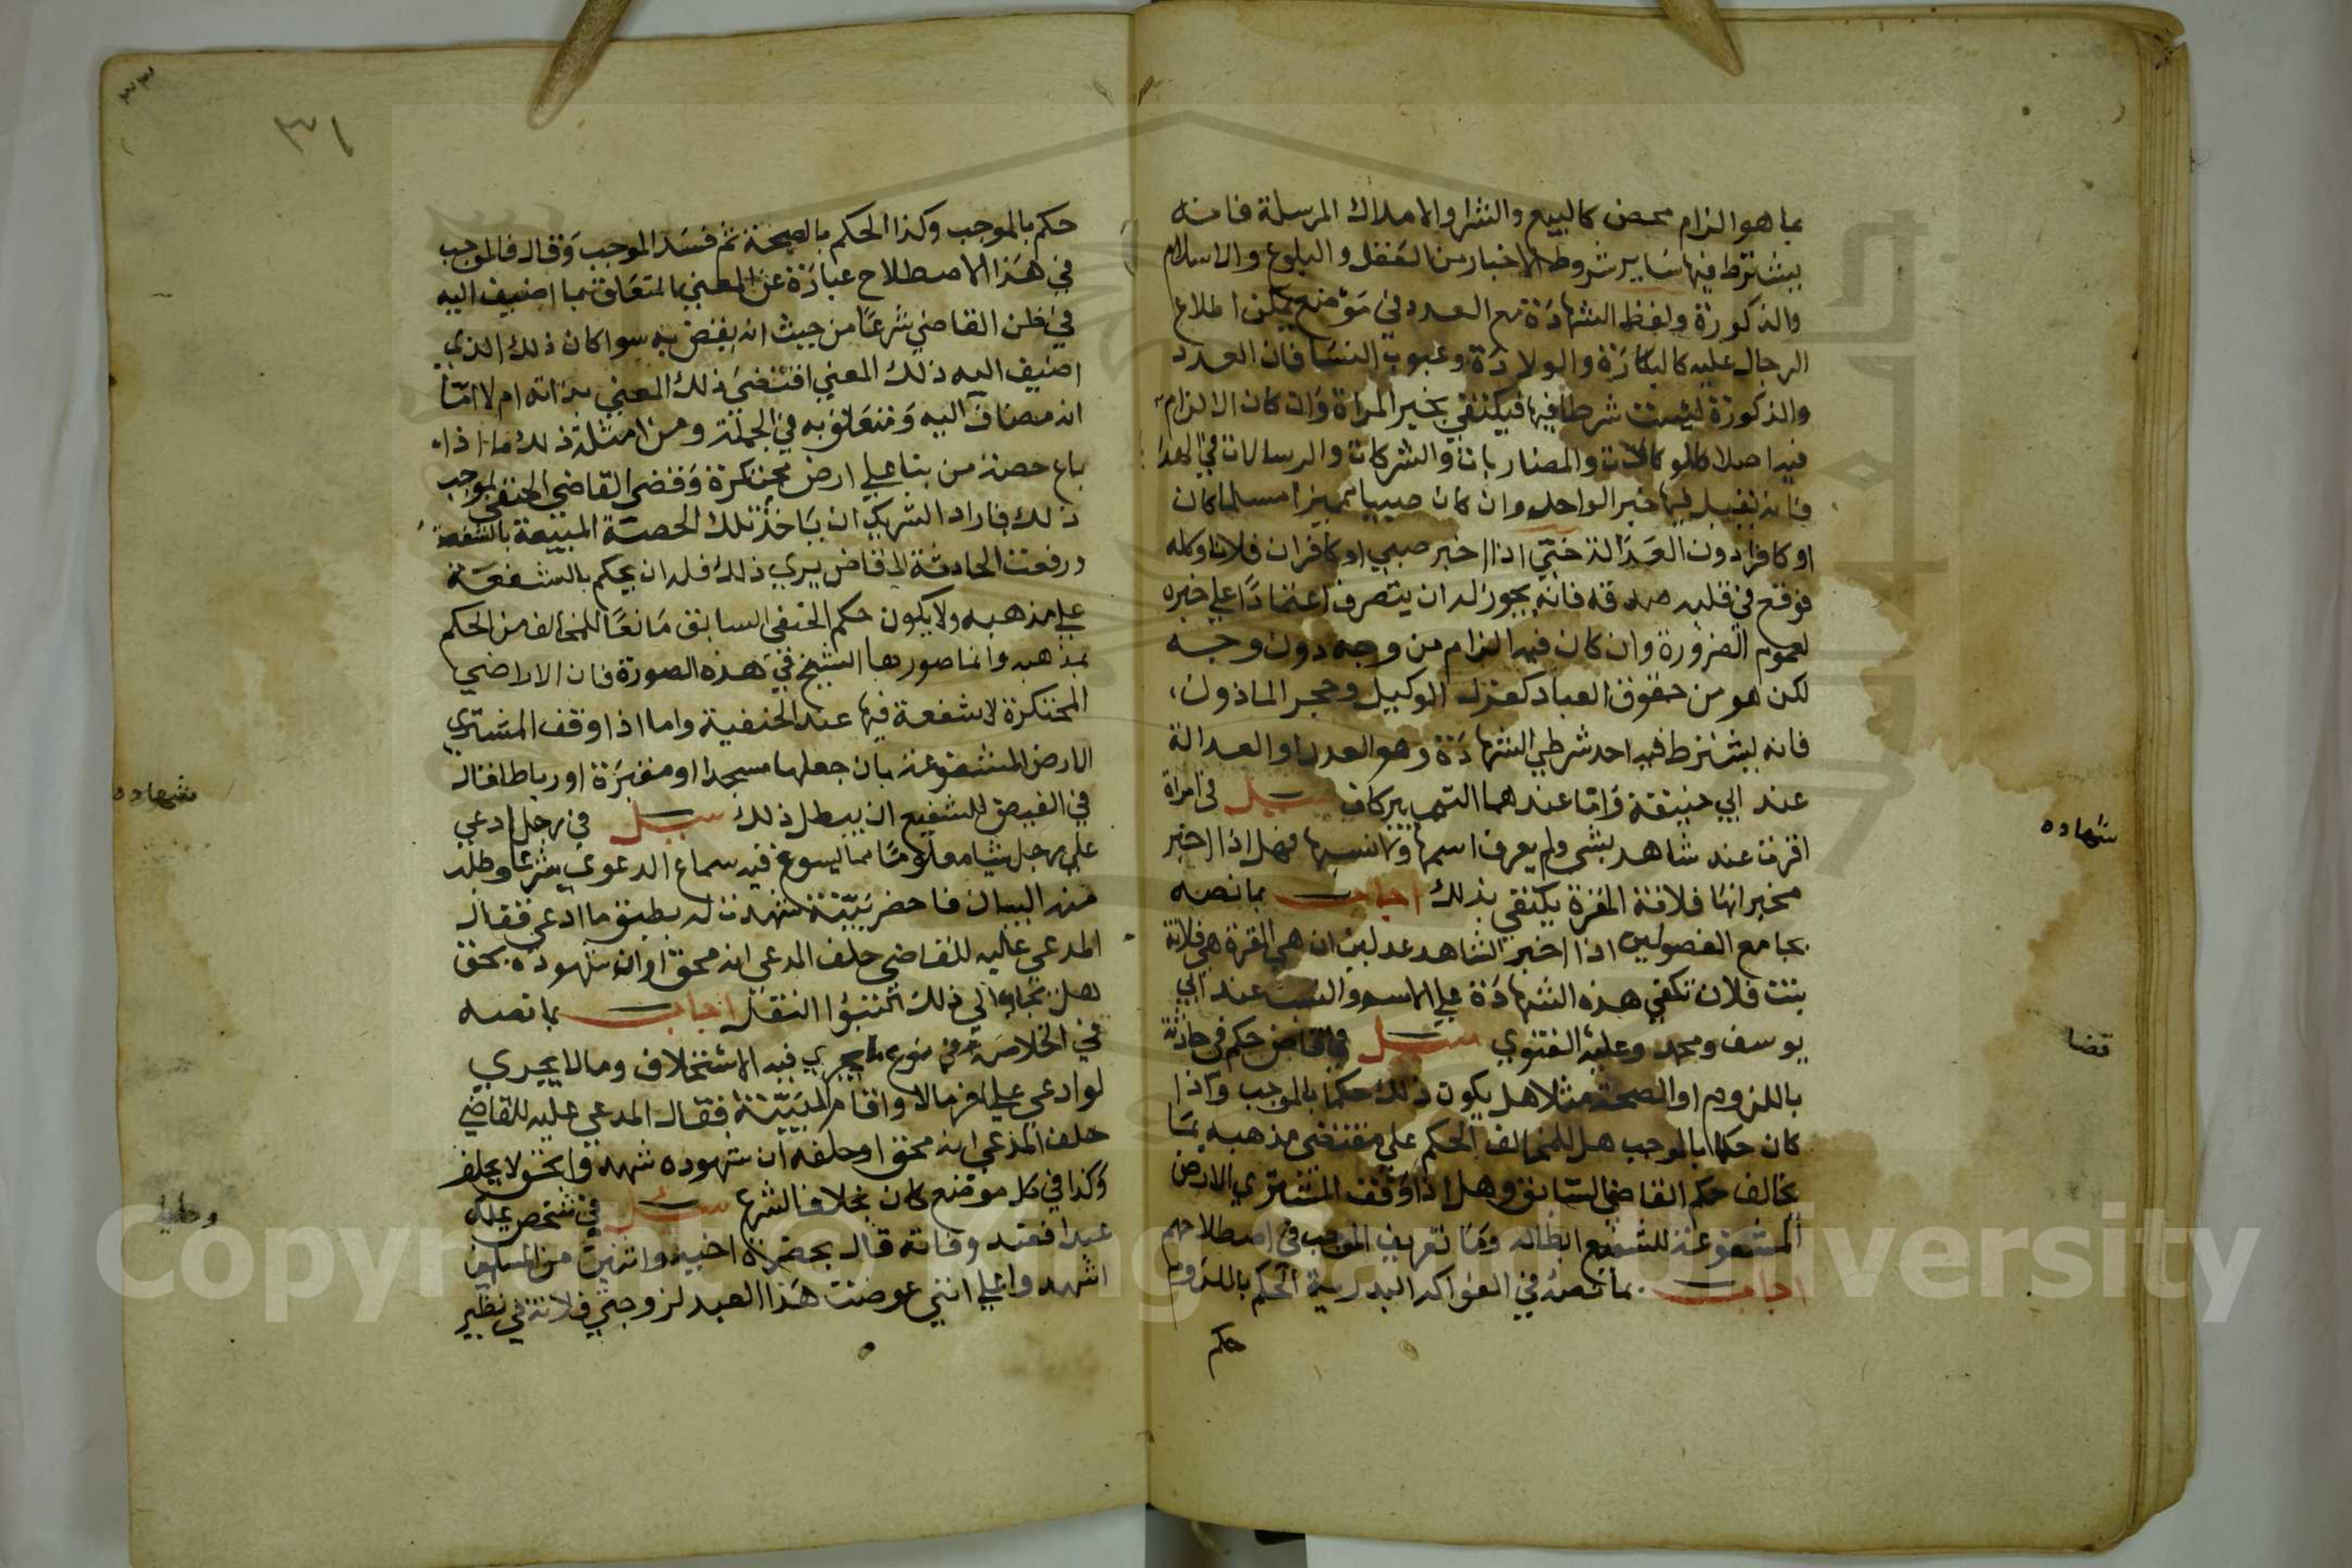 بما هو الزام محض كالبيع والشرا والاملاك المرسلة فانه
يشترط فيها ساير شروط الاخبار من العقل والبلوغ والاسلام
والذكورة ولفظ الشهادة مع العدد في موضع يمكن اطلاع
الرجال عليه كالبكارة والولادة وعيوب النسا فان العدد
والذكورة ليست شرطا فيها فيكتفي بخبر المراة وان كان الالزام
فيه اصلا كالوكالات والمضاربات والشركات والرسالات في
فانه يقبل فيها خبر الواحد وان كان صبيا مميزا مسلما كان
او كافرا دون العدالة حتي اذا اخبر صبي او كافر ان فلانا وكله
فوقع في قلبه صدقه فانه يجوز له ان يتصرف اعتمادا علي خبره
لعموم الضرورة وان كان فيه الزام من وجه دون وجه
لكن هو من حقوق العباد كعزل الوكيل وحجر الماذون
فانه يشترط فيه احد شرطي الشهادة وهو العدد او العدالة
عند ابي حنيفة واما عندهما التمييز كاف سيل في امراة
اقرت عند شاهد بشي ولم يعرف اسمها ونسبها فهل اذا اخبر
مخبر انها فلانة المقرة يكتفي بذلك اجاب بما نصه
بجامع الفصولين اذا اخبر الشاهد عدلين ان هي المقرة هي فلانة
بنت فلان تكفي هذه الشهادة علي الاسم والنسب عند ابي
يوسف ومحمد وعليه الفتوي سيل في قاض حكم في حادثة
باللزوم او الصحة مثلا هل يكون ذلك حكما بالموجب واذا
كان حكما بالموجب هل للمخالف الحكم علي مقتضي مذهبه بما
يخالف حكم القاضي السابق وهل اذا وقف المشتري الارض
المشفوعة للشفيع ابطاله وما تعريف الموجب في اصطلاحهم
اجاب بما نصه في الفواكه البدرية الحكم باللزوم
حكم
شهاده
قضا
٣١
حكم بالموجب وكذا الحكم بالصحة ثم فسد الموجب وقال فالموجب
في هذا الاصطلاح عبارة عن المعني المتعلق بما اضيف اليه
في ظن القاضي شرعا من حيث انه يقضي به سوا كان ذلك الذي
اضيف اليه ذلك المعني اقتضي ذلك المعني بذاته ام لا
انه مضاف اليه ومتعلق به في الجملة ومن امثلة ذلك ما اذا
باع حصة من بنا علي ارض محتكرة وقضي القاضي الحنفي بموجب
ذلك فاراد الشريك ان ياخذ تلك الحصة المبيعة بالشفعة
ورفعت الحادثة الي قاض يري ذلك فله ان يحكم بالشفعة
علي مذهبه ولا يكون حكم الحنفي السابق مانعا للمخالف من الحكم
بمذهبه وانما صورها الشيخ في هذه الصورة فان الاراضي
المحتكرة لا شفعة فيها عند الحنفية واما اذا وقف المشتري
الارض المشفوعة بان جعلها مسجدا او مقبرة او رباطا فقال
في الفيض للشفيع ان يبطل ذلك سيل في رجل ادعي
علي رجل شيا معلوما مما يسوغ فيه سماع الدعوي شرعا وطلب
منه البيان فاحضر بينة شهدت له بطبق ما ادعي فقال
المدعي عليه للقاضي حلف المدعي انه محق او ان شهوده بحق
هل يجاب الي ذلك النقل اجاب بما نصه
في الخلاصة في نوع ما يجري فيه الاستحلاف وما لا يجري
لو ادعي علي اخر مالا واقام البينة فقال المدعي عليه للقاضي
حلف المدعي انه محق او حلفه ان شهوده شهدوا بحق لا يحلف
وكذا في كل موضع كان بخلاف الشرع سيل في شخص يملك
عبدا فعند وفاته قال بحضرة اخيه واثنين من المسلمين
اشهدوا علي انني عوضت هذا العبد لزوجتي فلانة في نظير
شهاده